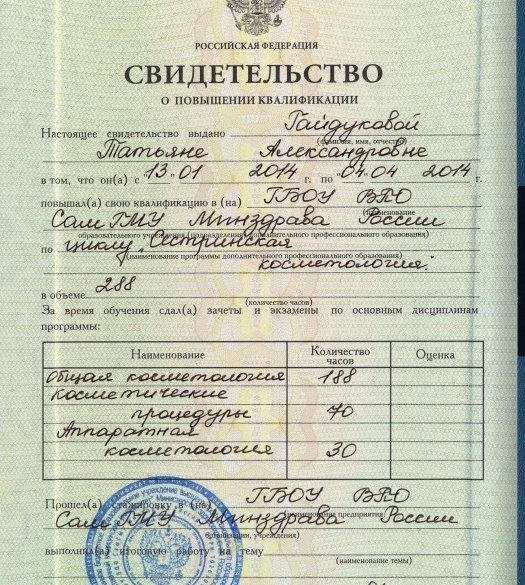 РОССИЙСКАЯ ФЕДЕРАЦИЯ
СВИДЕТЕЛЬСТВО
О ПОВЫШЕНИИ КВАЛИФИКАЦИИ
Настоящее свидетельство выдано Гайдуковой
(фамилия, имя, отчество)
Татьяне Александровне
в том, что он(а) с 13.01 2014 г. по 04.04 2014 г.
повышал(а) свою квалификацию в (на) ГБОУ ВПО
(наименование
СамГМУ Минздрава России
образовательного учреждения (подразделения) дополнительного профессионального образования)
по циклу "Сестринская
(наименование программы дополнительного профессионального образования)
косметология"
в объеме 288
(количество часов)
За время обучения сдал(а) зачеты и экзамены по основным дисциплинам
программы:
Наименование Количество часов Оценка
Общая косметология 188
Косметические
процедуры 70
Аппаратная
косметология 30
Прошел(а) стажировку в (на) ГБОУ ВПО
(наименование предприятия,
СамГМУ Минздрава России
организации, учреждения)
выполнил(а) итоговую работу на тему
(наименование темы)